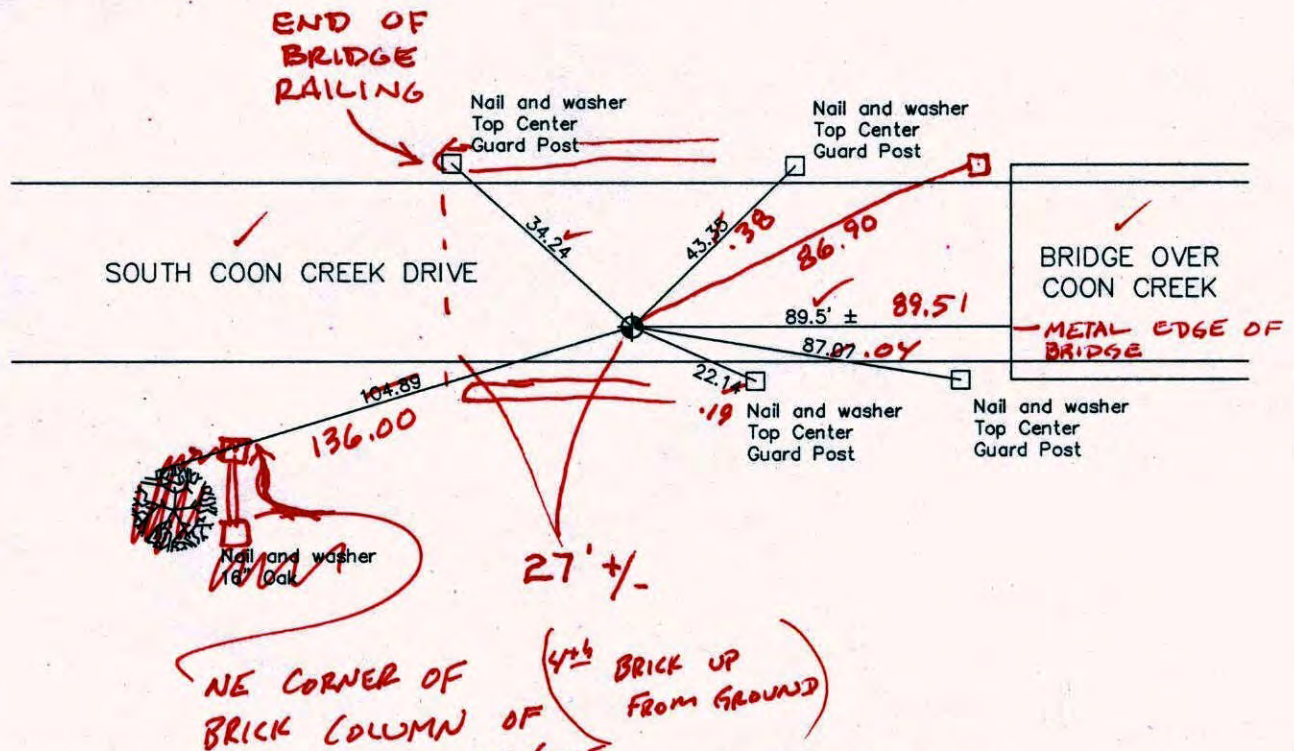 END OF
BRIDGE
RAILING
Nail and washer
Top Center
Guard Post
Nail and washer
Top Center
Guard Post
34.24
43.35
.38
86.90
SOUTH COON CREEK DRIVE
BRIDGE OVER
COON CREEK
89.5' ±
89.51
METAL EDGE OF
BRIDGE
87.07
.04
104.89
136.00
22.14
.19
Nail and washer
Top Center
Guard Post
Nail and washer
Top Center
Guard Post
Nail and washer
16" Oak
27' +/-
NE CORNER OF
BRICK COLUMN OF
(4th BRICK UP
FROM GROUND)